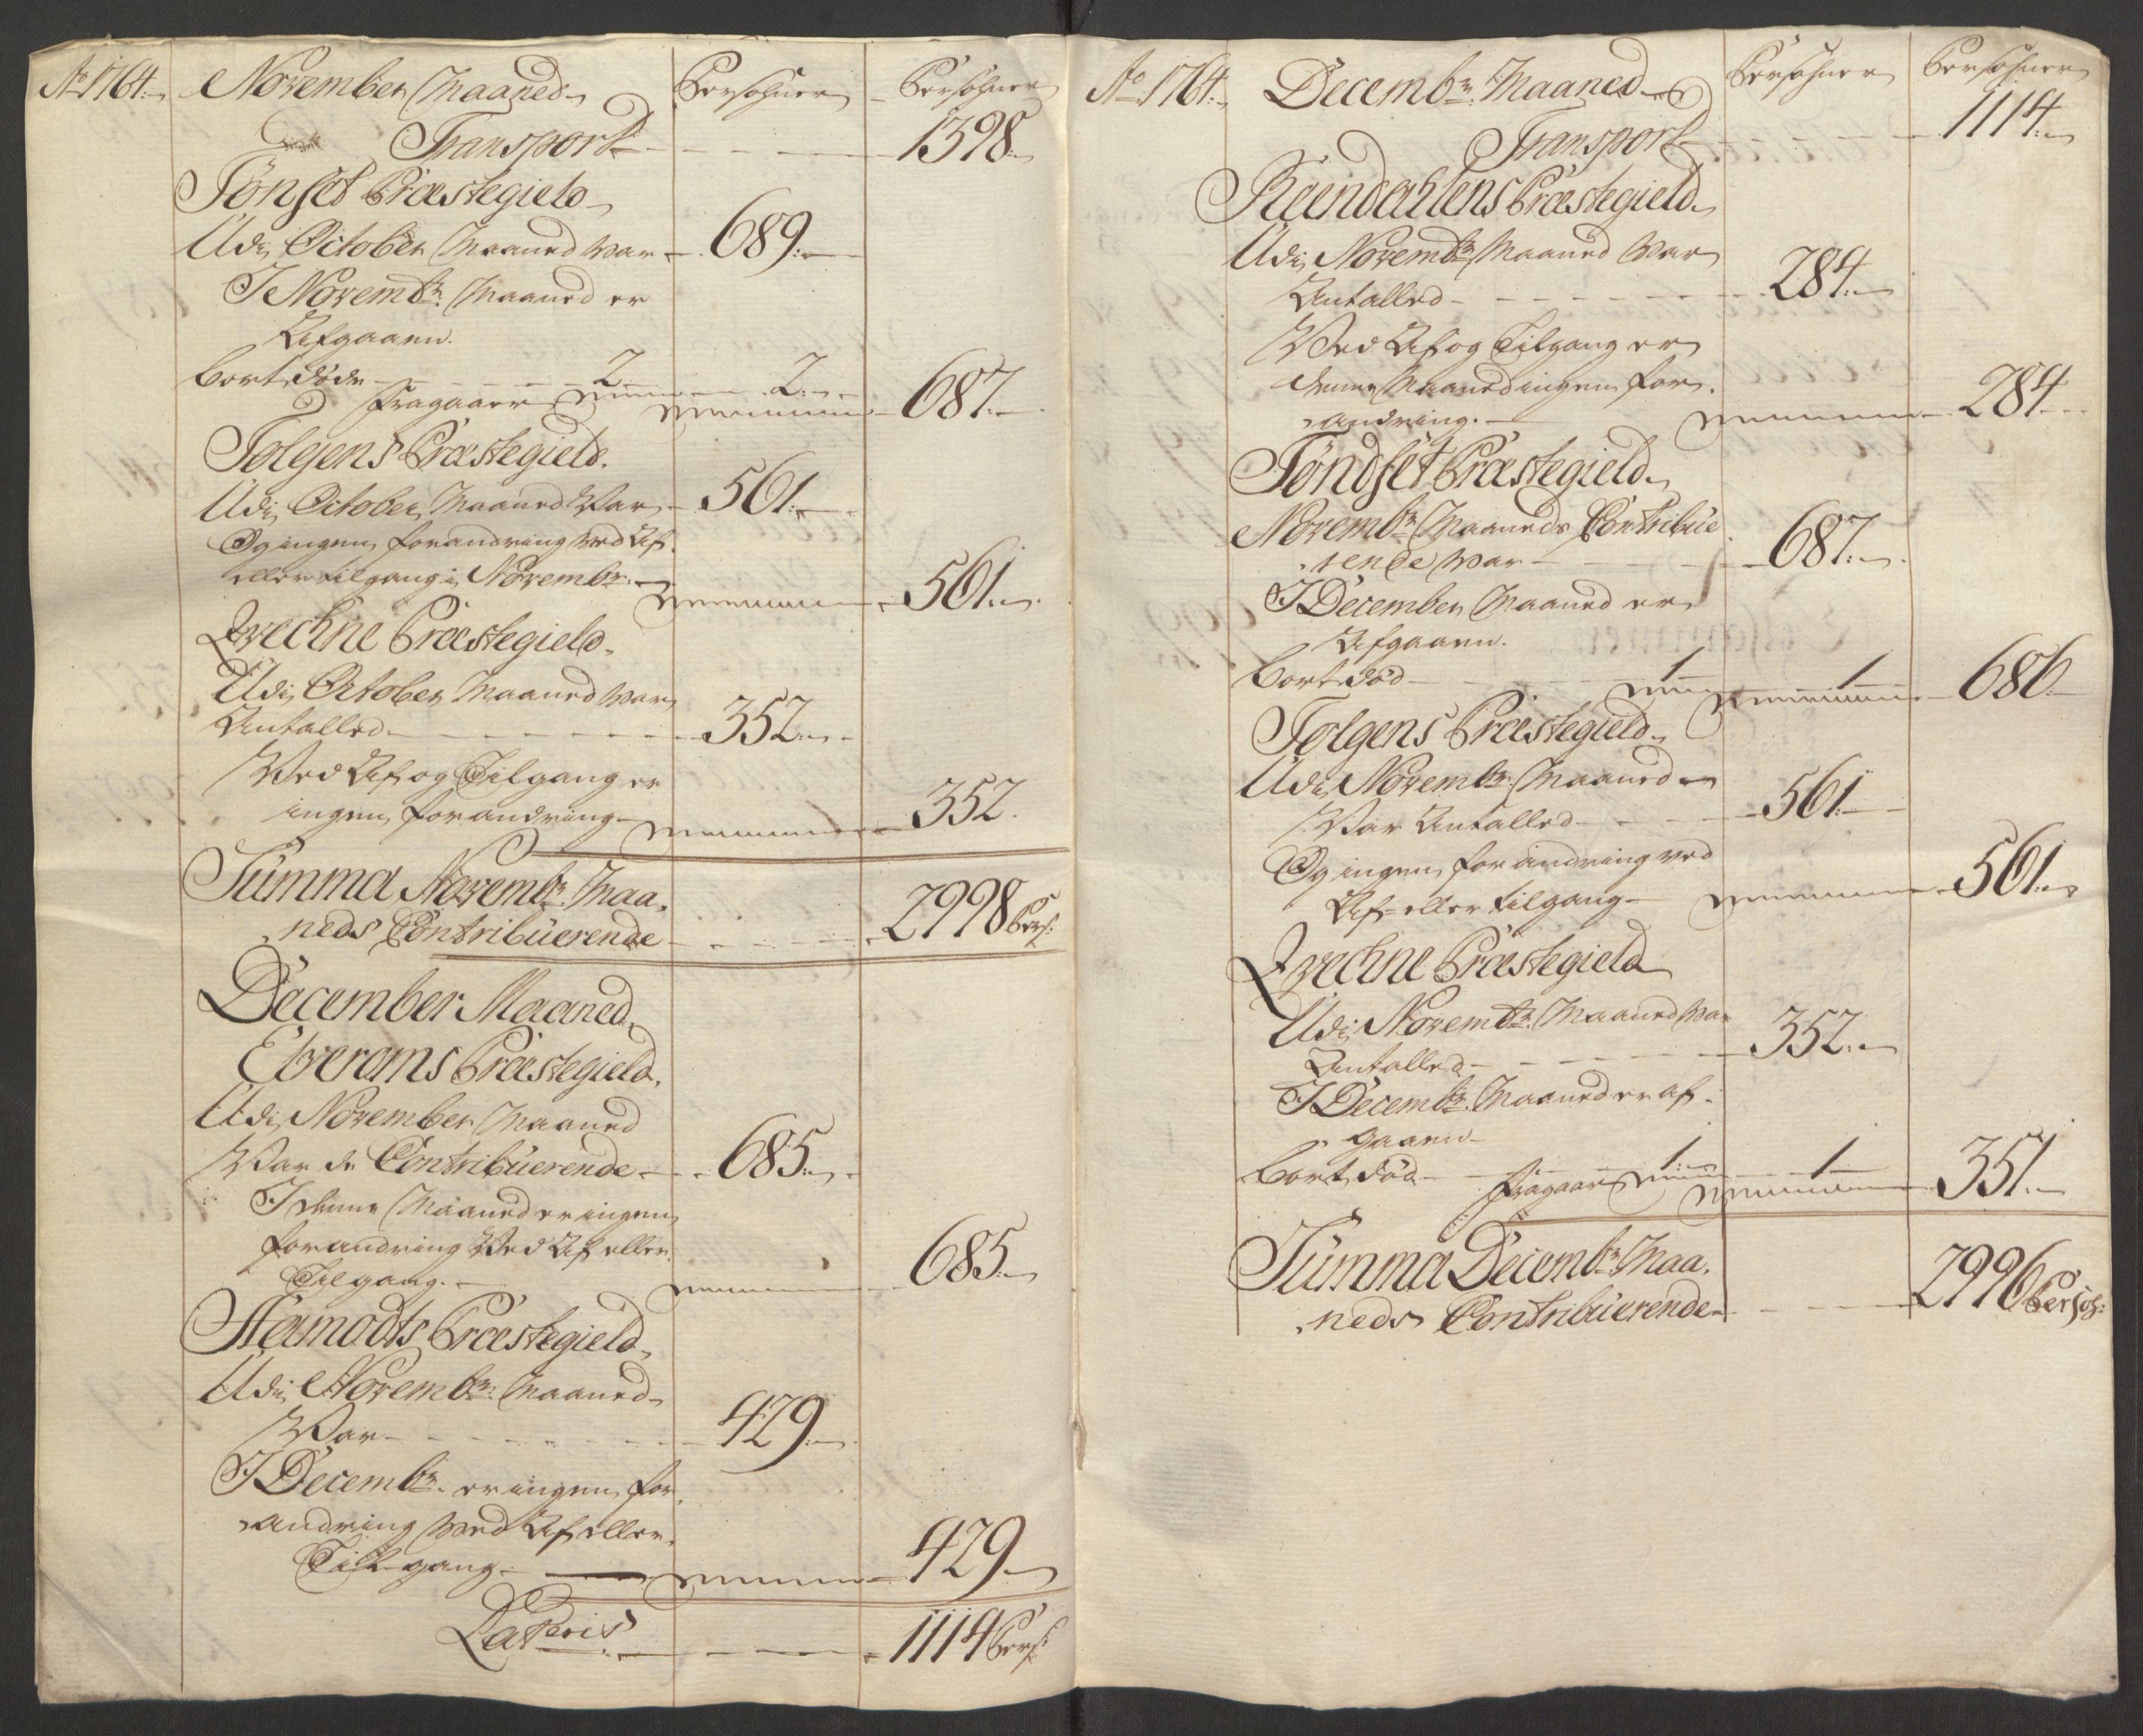 Ao 1764. November Maaned Persohner Persohner
Transport 1398.
Tönset Præstegield
Udi October Maaned var 689.
I Novembr. Maaned er
Afgaaen.
Bortdöde 2. 2.
Fragaaer 687.
Tolgens Præstegield.
Udi October Maaned Var 561.
Og ingen forandring ved Af
eller tilgang i Novembr. 561.
Qvechne Præstegield.
Udi October Maaned var
Antalled 352.
Ved Af og Tilgang er
ingen forandring 352.
Summa Novembr. Maa,
neds Contribuerende 2998 Pers:
December Maaned.
Elveroms Præstegield.
Udi November Maaned
Var de Contribuerende 685.
I denne Maaned er ingen
forandring Ved Af eller
Tilgang. 685.
Aamodts Præstegield.
Udi Novembr. Maaned
Var 429.
I Decembr. er ingen for,
andring ved Af eller
Till-gang. 429
Lateris 1114 Pers:
Ao 1764. Decembr. Maaned Persohner Persohner
Transport 1114.
Reendahlens Præstegield.
Udi Novembr. Maaned Var
Antalled 284.
Ved Af og Tilgang er
denne Maaned ingen for,
andring. 284
Töndset Præstegield.
Novembr. Maaneds Contribue
rende var 687.
I December Maaned er
Afgaaen.
Bortdöd 1 1 686
Tolgens Præstegield.
Udi Novembr. Maaned
Var Antalled 561.
Og ingen forandring ved
Af- eller tilgang 561.
Qvechne Præstegield
Udi Novembr. Maaned Var
Antalled 352.
I Decembr. Maaned er af,
gaaen
Bortdöd 1. 1
Fragaaer 351.
Summa Decembr. Maa,
neds Contribuerende 2996 Persoh: